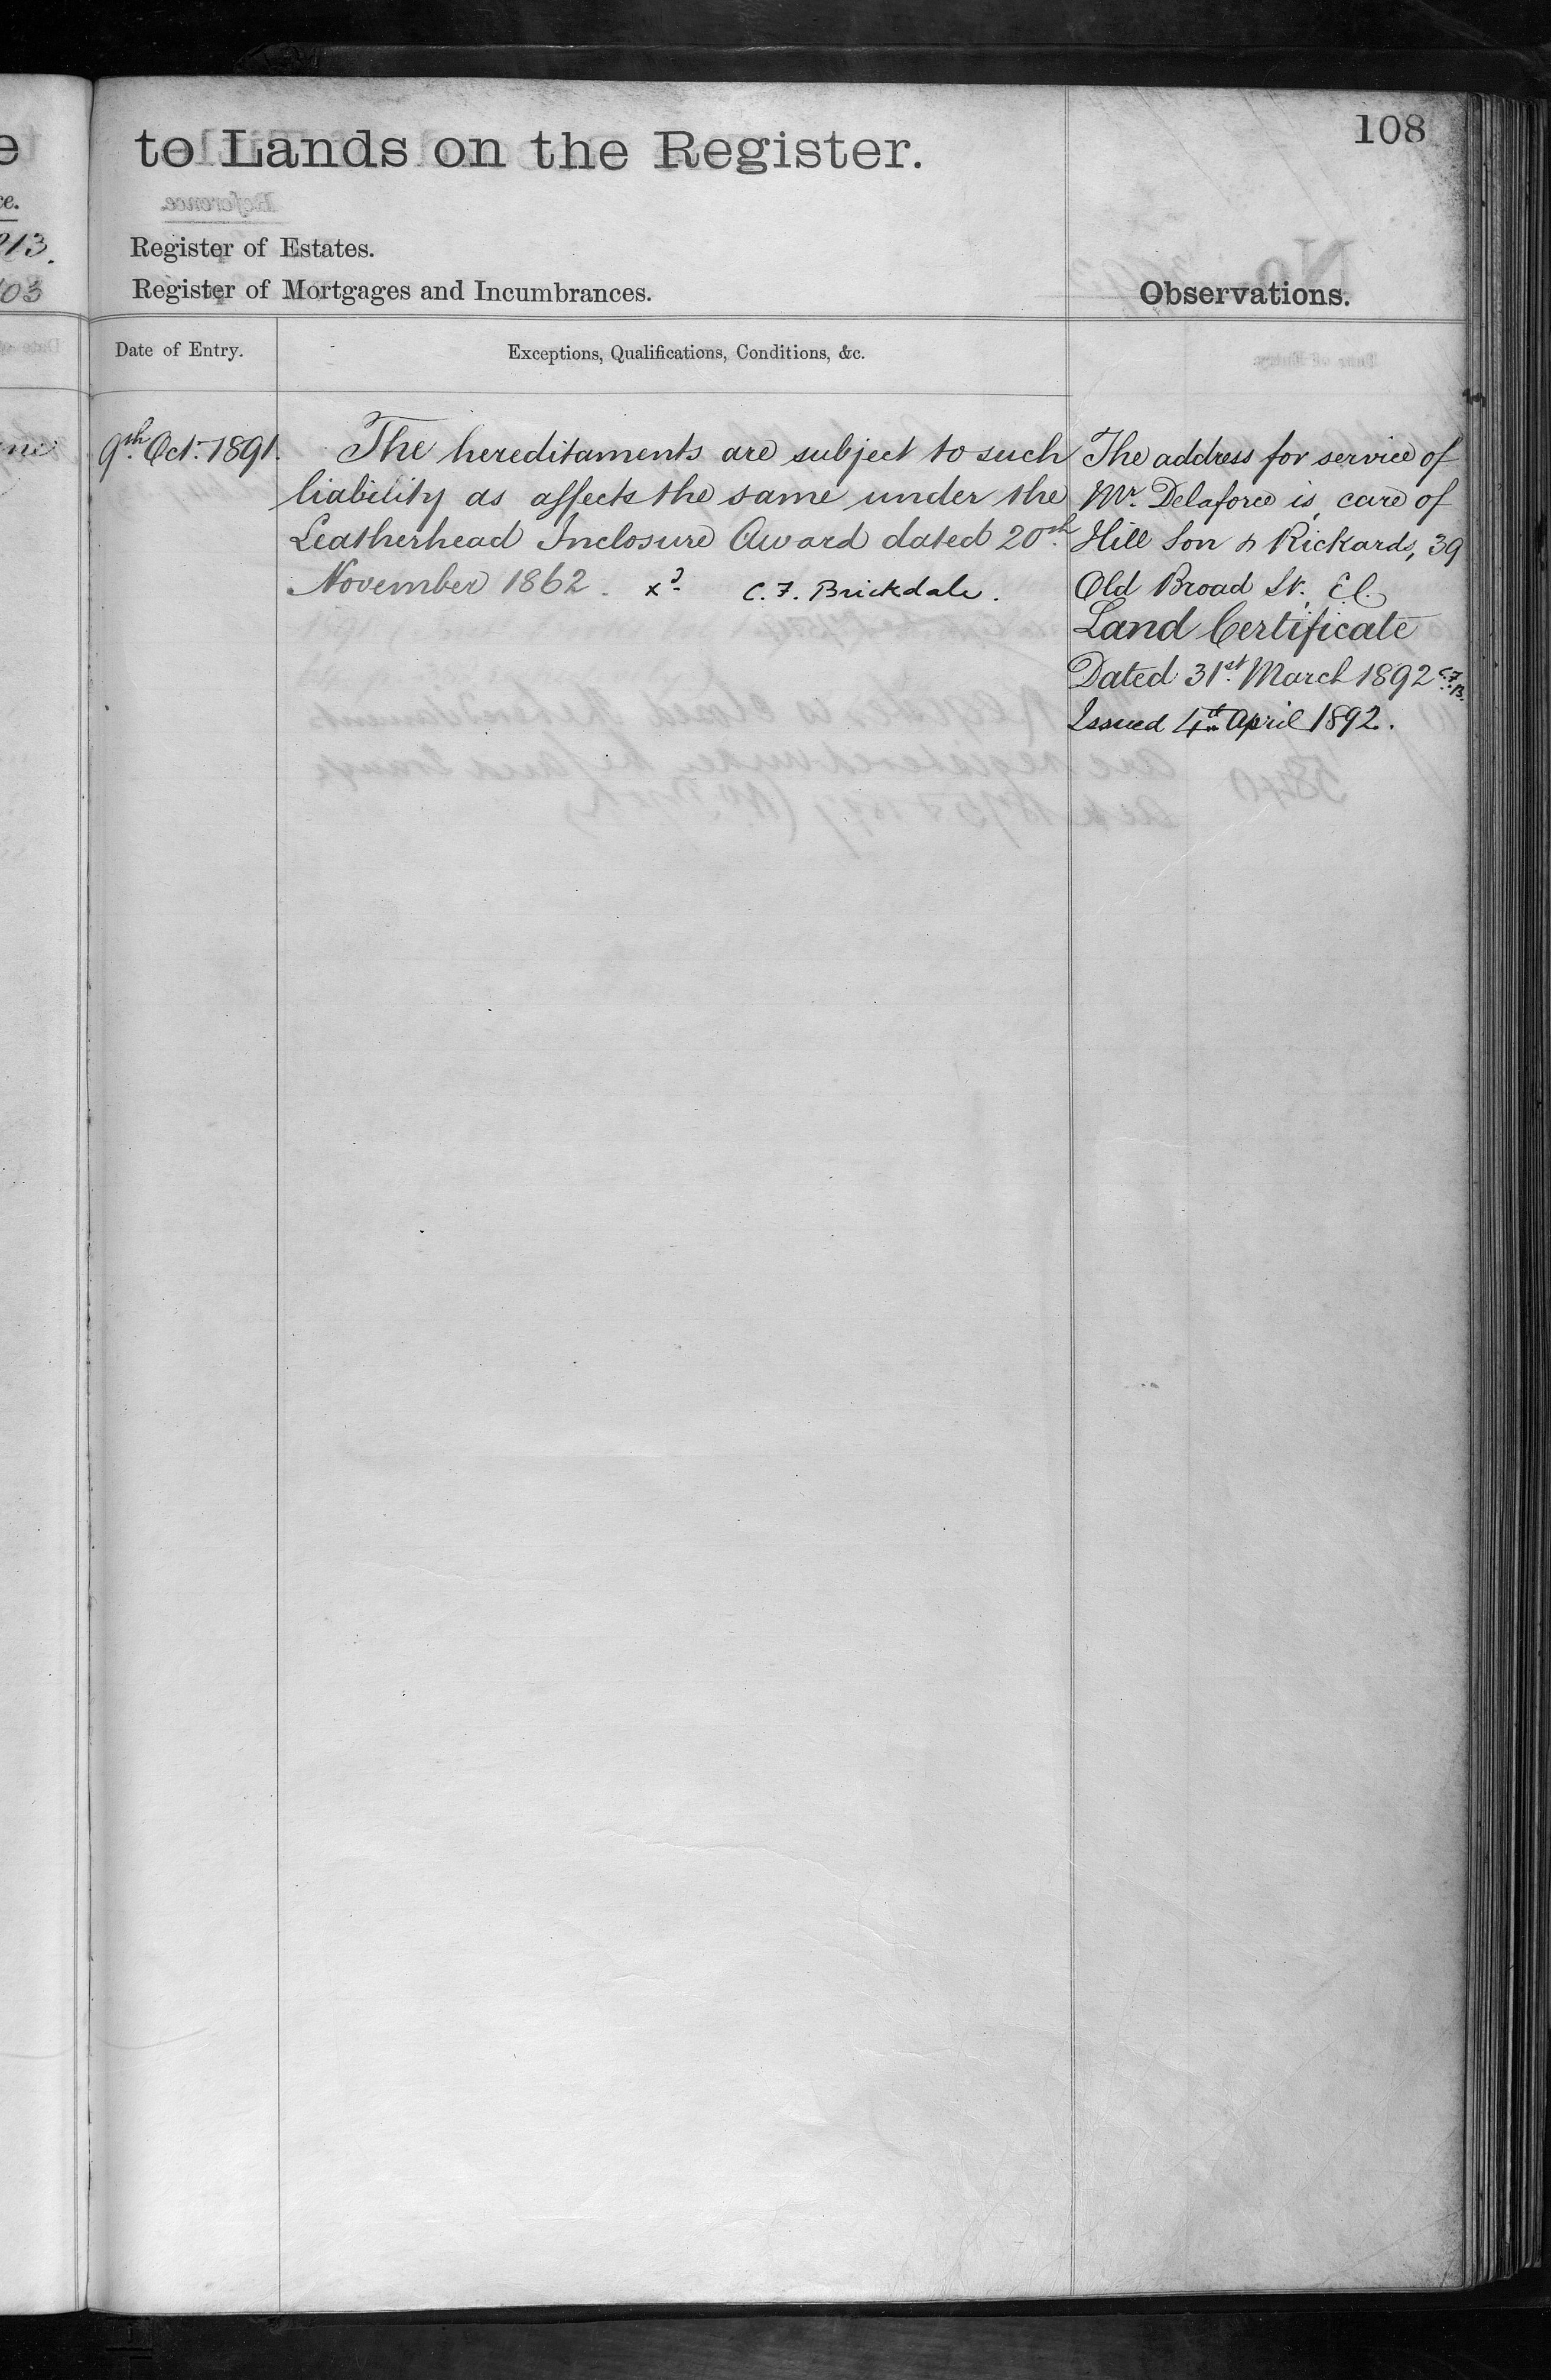 108
to Lands on the Register.
Register of Estates.
Register of Mortgages and Incumbrances.
Observations.
Date of Entry.
Exceptions, Qualifications, Conditions, &c.
9th Oct. 1891.
The hereditaments are subject to such
liability as affects the same under the
Leatherhead Inclosure Award dated 20th
November 1862. xd C. F. Brickdale.
The address for service of
Mr. Delaforce is, care of
Hill Son & Rickards, 39
Old Broad St. E.C.
Land Certificate
Dated 31st March 1892 C.F.B.
Issued 4th April 1892.
213.